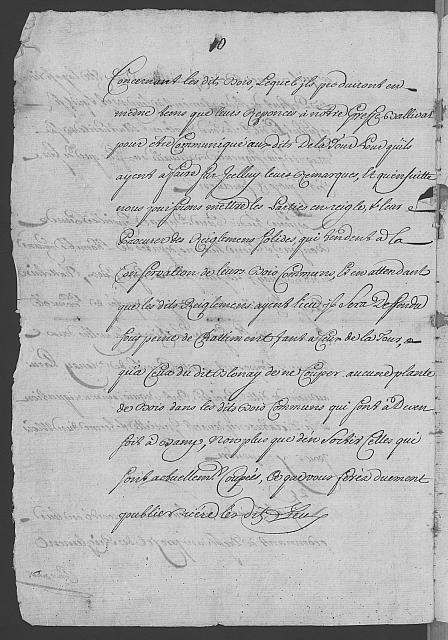 10
Concernant les dits Bois, Lequel ils produiront en
même tems que leurs Reponces à nôtre Greffe Ballival
pour être Communiqué aux dits de la Tour Pour qu'ils
ayent a faire sur Jcelluy leurs Remarques, et qu'en suitte
nous puissions mettre les Parties en reigle, & leur
Procurer des Reiglemens solides, qui tendent à la
Conservation de leurs Bois Communs, Et en attendant
que les dits Reiglemens ayent lieu, il sera Deffendu
sous peine de Chatiment tant a Ceux de la Tour,
qu'a Ceux du dit Blonay de ne Couper aucune plante
de Bois dans les dits Bois Communs qui sont à De
soit à Damp, Non plus que d'en Sortir Celles qui
sont actuellement Coupés, Ce que vous ferés duement
publier rière les dits Lieux